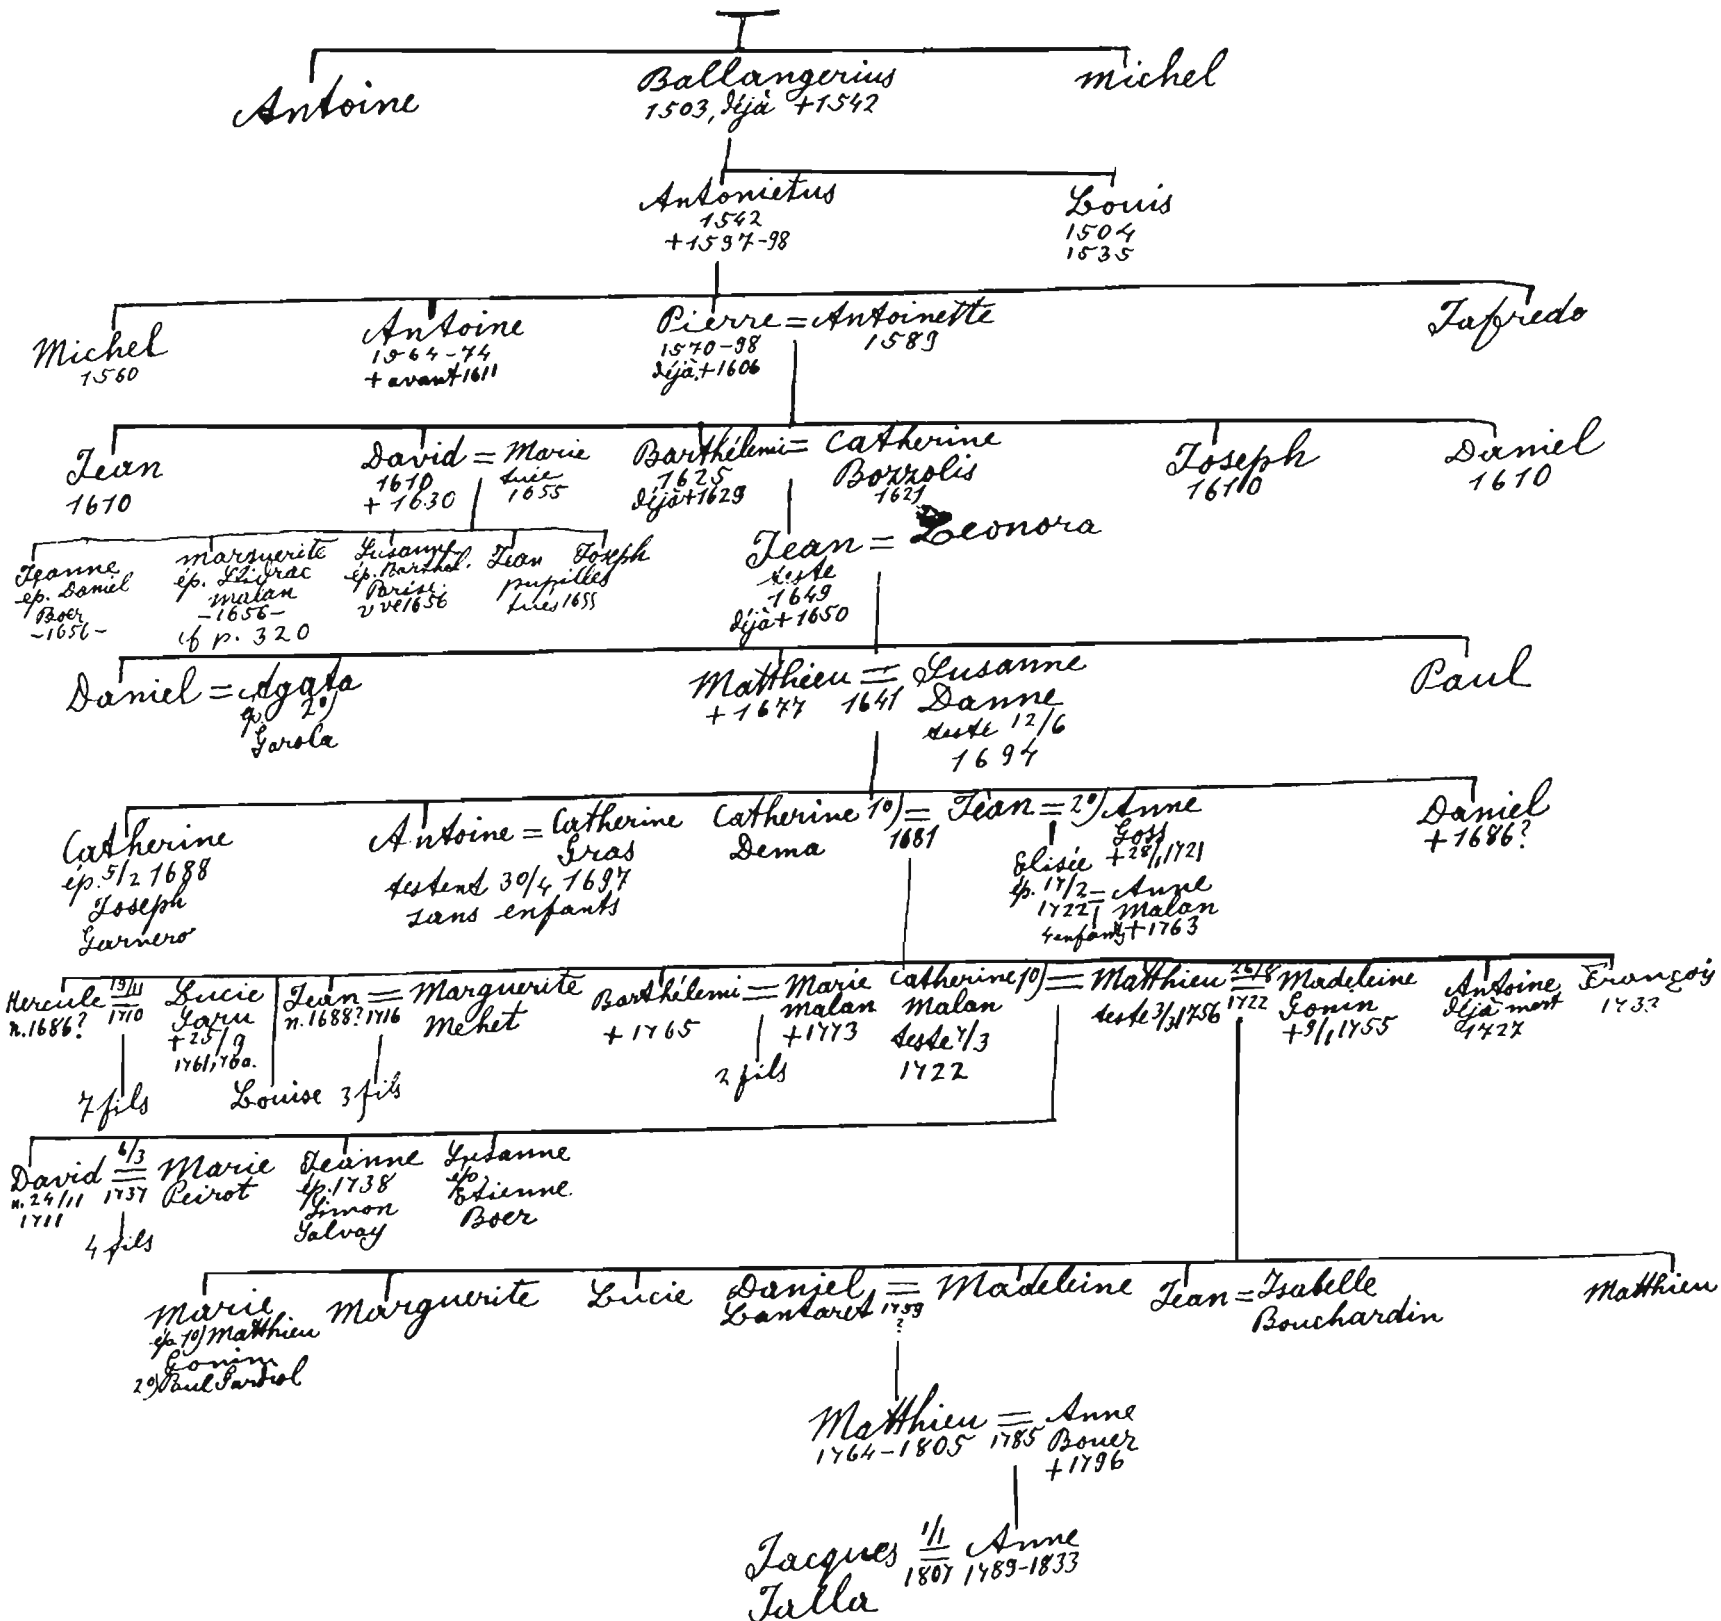 Antoine
Ballangerius
1503, déjà +1542
Michel
Antonietus
1542
+1597-98
Louis
1504
1535
Michel
1560
Antoine
1564-74
+ avant 1611
Pierre = Antoinette
1570-98
déjà +1606
1589
Jafredo
Jean
1610
David = Marie
1610
+ 1630
tuée
1655
Barthélemi = Catherine
Bozzolis
1625
déjà +1629
1621
Joseph
1610
Daniel
1610
Jeanne
ép. Daniel
Boer
-1656-
Marguerite
ép.
Malan
-1656-
cf p. 320
Susanne
ép. Barthol.
Parise
vve 1656
Jean Joseph
pupilles
tués 1655
Jean = Leonora
teste
1649
déjà +1650
Daniel = Agata
ép. 2º)
Garola
Matthieu = Susanne
+ 1677 1641 Danne
teste 12/6
1694
Paul
Catherine
ép. 5/2 1688
Joseph
Garnero
Antoine = Catherine
Gras
testent 30/4 1697
sans enfants
Catherine 1º) = Jean = 2º) Anne
Dema 1681 Goss
+28/1,1721
Elisée
ép. 17/2 = Anne
1722 Malan
4 enfants +1763
Daniel
+1686?
Hercule 19/11 = Lucie
n.1686? 1710 Garu
+25/9
1761, 76a.
7 fils
Louise
Jean = Marguerite
n.1688? 1716 Mehet
3 fils
Barthélemi = Marie
+1765 Malan
+1773
2 fils
Catherine 1º) = Matthieu 26/8 = Madeleine
Malan teste 3/3 1756 1722 Gonin
teste 7/3 +9/1,1755
1722
Antoine
déjà mort
1727
François
173?
David 6/3 = Marie
n.24/11 1737 Peirot
1711
4 fils
Jeanne
ép. 1738
Simon
Salvay
Susanne
ép.
Etienne
Boer
Marie
ép. 1º) Matthieu
Gonin
2º) Paul Gardiol
Marguerite
Lucie
Daniel = Madeleine
Lantaret 1759
?
Jean = Isabelle
Bouchardin
Matthieu
Matthieu = Anne
1764-1805 1785 Bouer
+1796
Jacques 1/1 = Anne
Jalla 1807 1789-1833